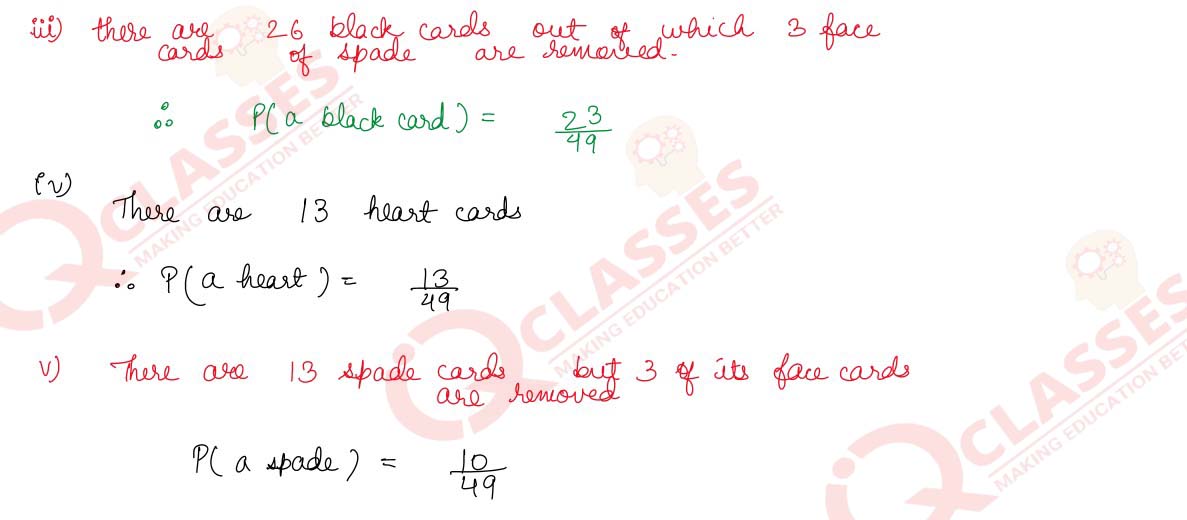 iii) there are 26 black cards out of which 3 face
cards of spade are removed.
∴ P(a black card) = 23/49
iv)
There are 13 heart cards
∴ P(a heart) = 13/49
v) There are 13 spade cards but 3 of its face cards
are removed
P(a spade) = 10/49
QCLASSES
MAKING EDUCATION BETTER
QCLASSES
MAKING EDUCATION BETTER
QCLASSES
MAKING EDUCATION BETTER